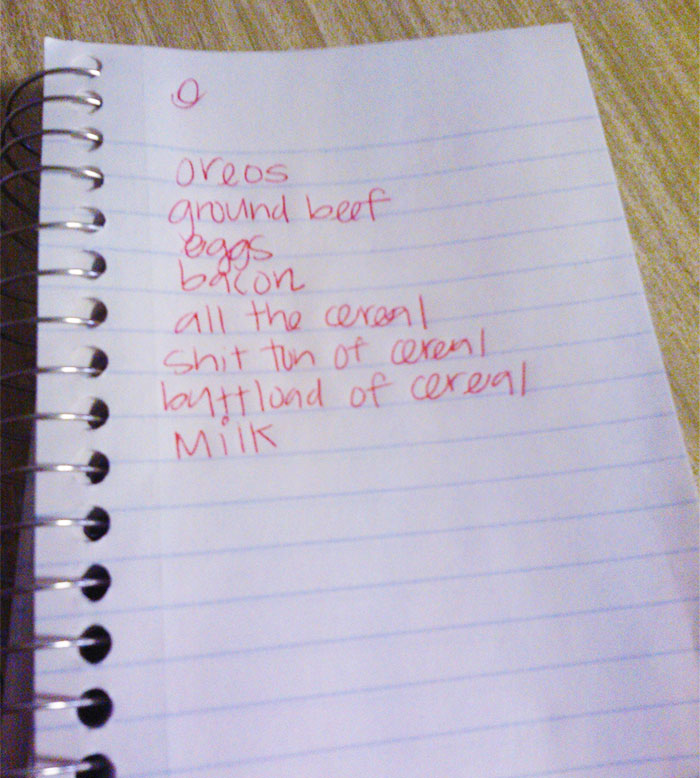 oreos
ground beef
eggs
bacon
all the cereal
shit ton of cereal
buttload of cereal
Milk